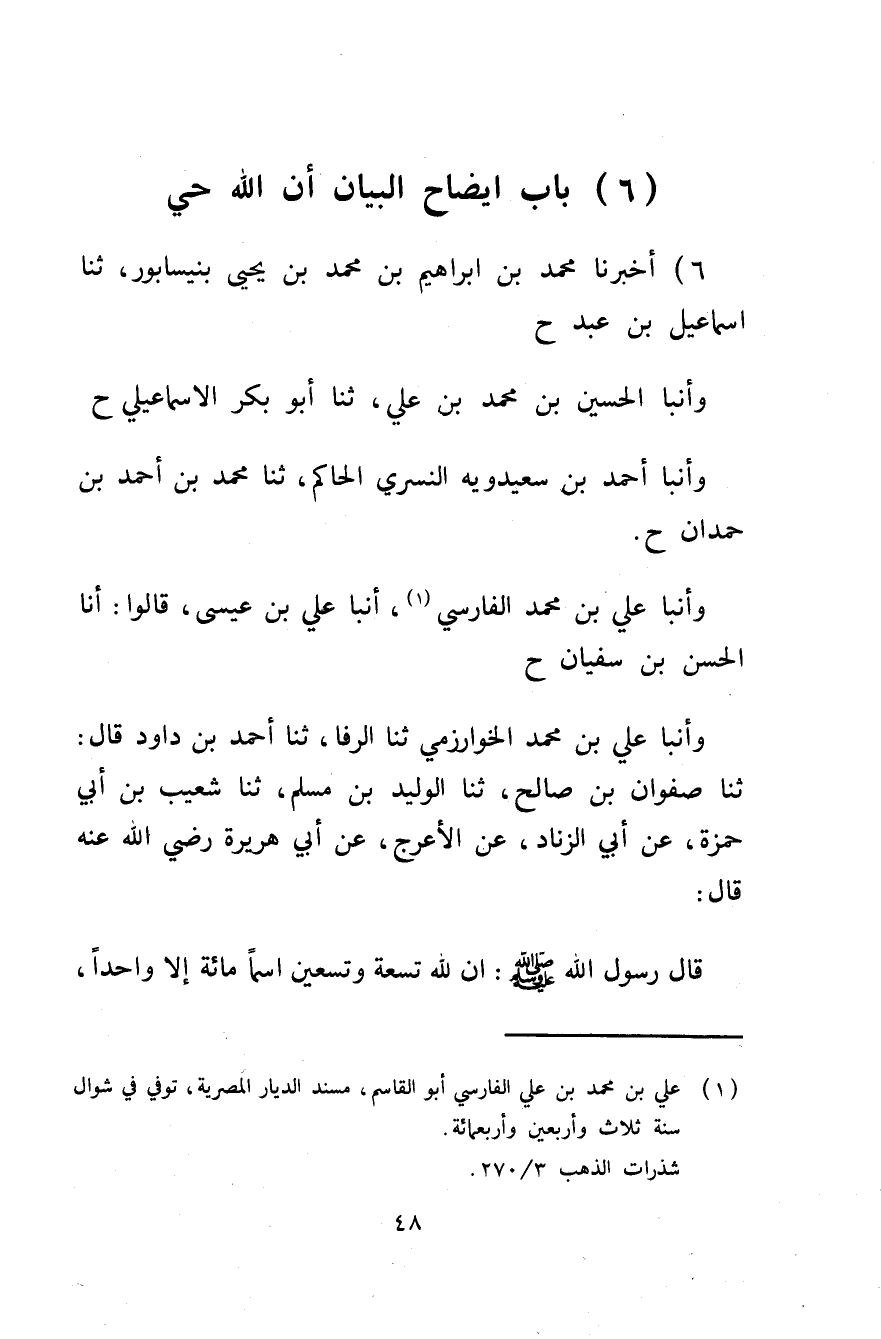 (٦) باب ايضاح البيان أن الله حي
٦) أخبرنا محمد بن ابراهيم بن محمد بن يحيى بنيسابور، ثنا
اسماعيل بن عبد ح
وأنبا الحسين بن محمد بن علي، ثنا أبو بكر الاسماعيلي ح
وأنبا أحمد بن سعيدويه النسري الحاكم، ثنا محمد بن أحمد بن
حمدان ح.
وأنبا علي بن محمد الفارسي(١)، أنبا علي بن عيسى، قالوا: أنا
الحسن بن سفيان ح
وأنبا علي بن محمد الخوارزمي ثنا الرفا، ثنا أحمد بن داود قال:
ثنا صفوان بن صالح، ثنا الوليد بن مسلم، ثنا شعيب بن أبي
حمزة، عن أبي الزناد، عن الأعرج، عن أبي هريرة رضي الله عنه
قال:
قال رسول الله ﷺ: ان لله تسعة وتسعين اسماً مائة إلا واحداً،
(١) علي بن محمد بن علي الفارسي أبو القاسم، مسند الديار المصرية، توفي في شوال
سنة ثلاث وأربعين وأربعمائة.
شذرات الذهب ٢٧٠/٣.
٤٨